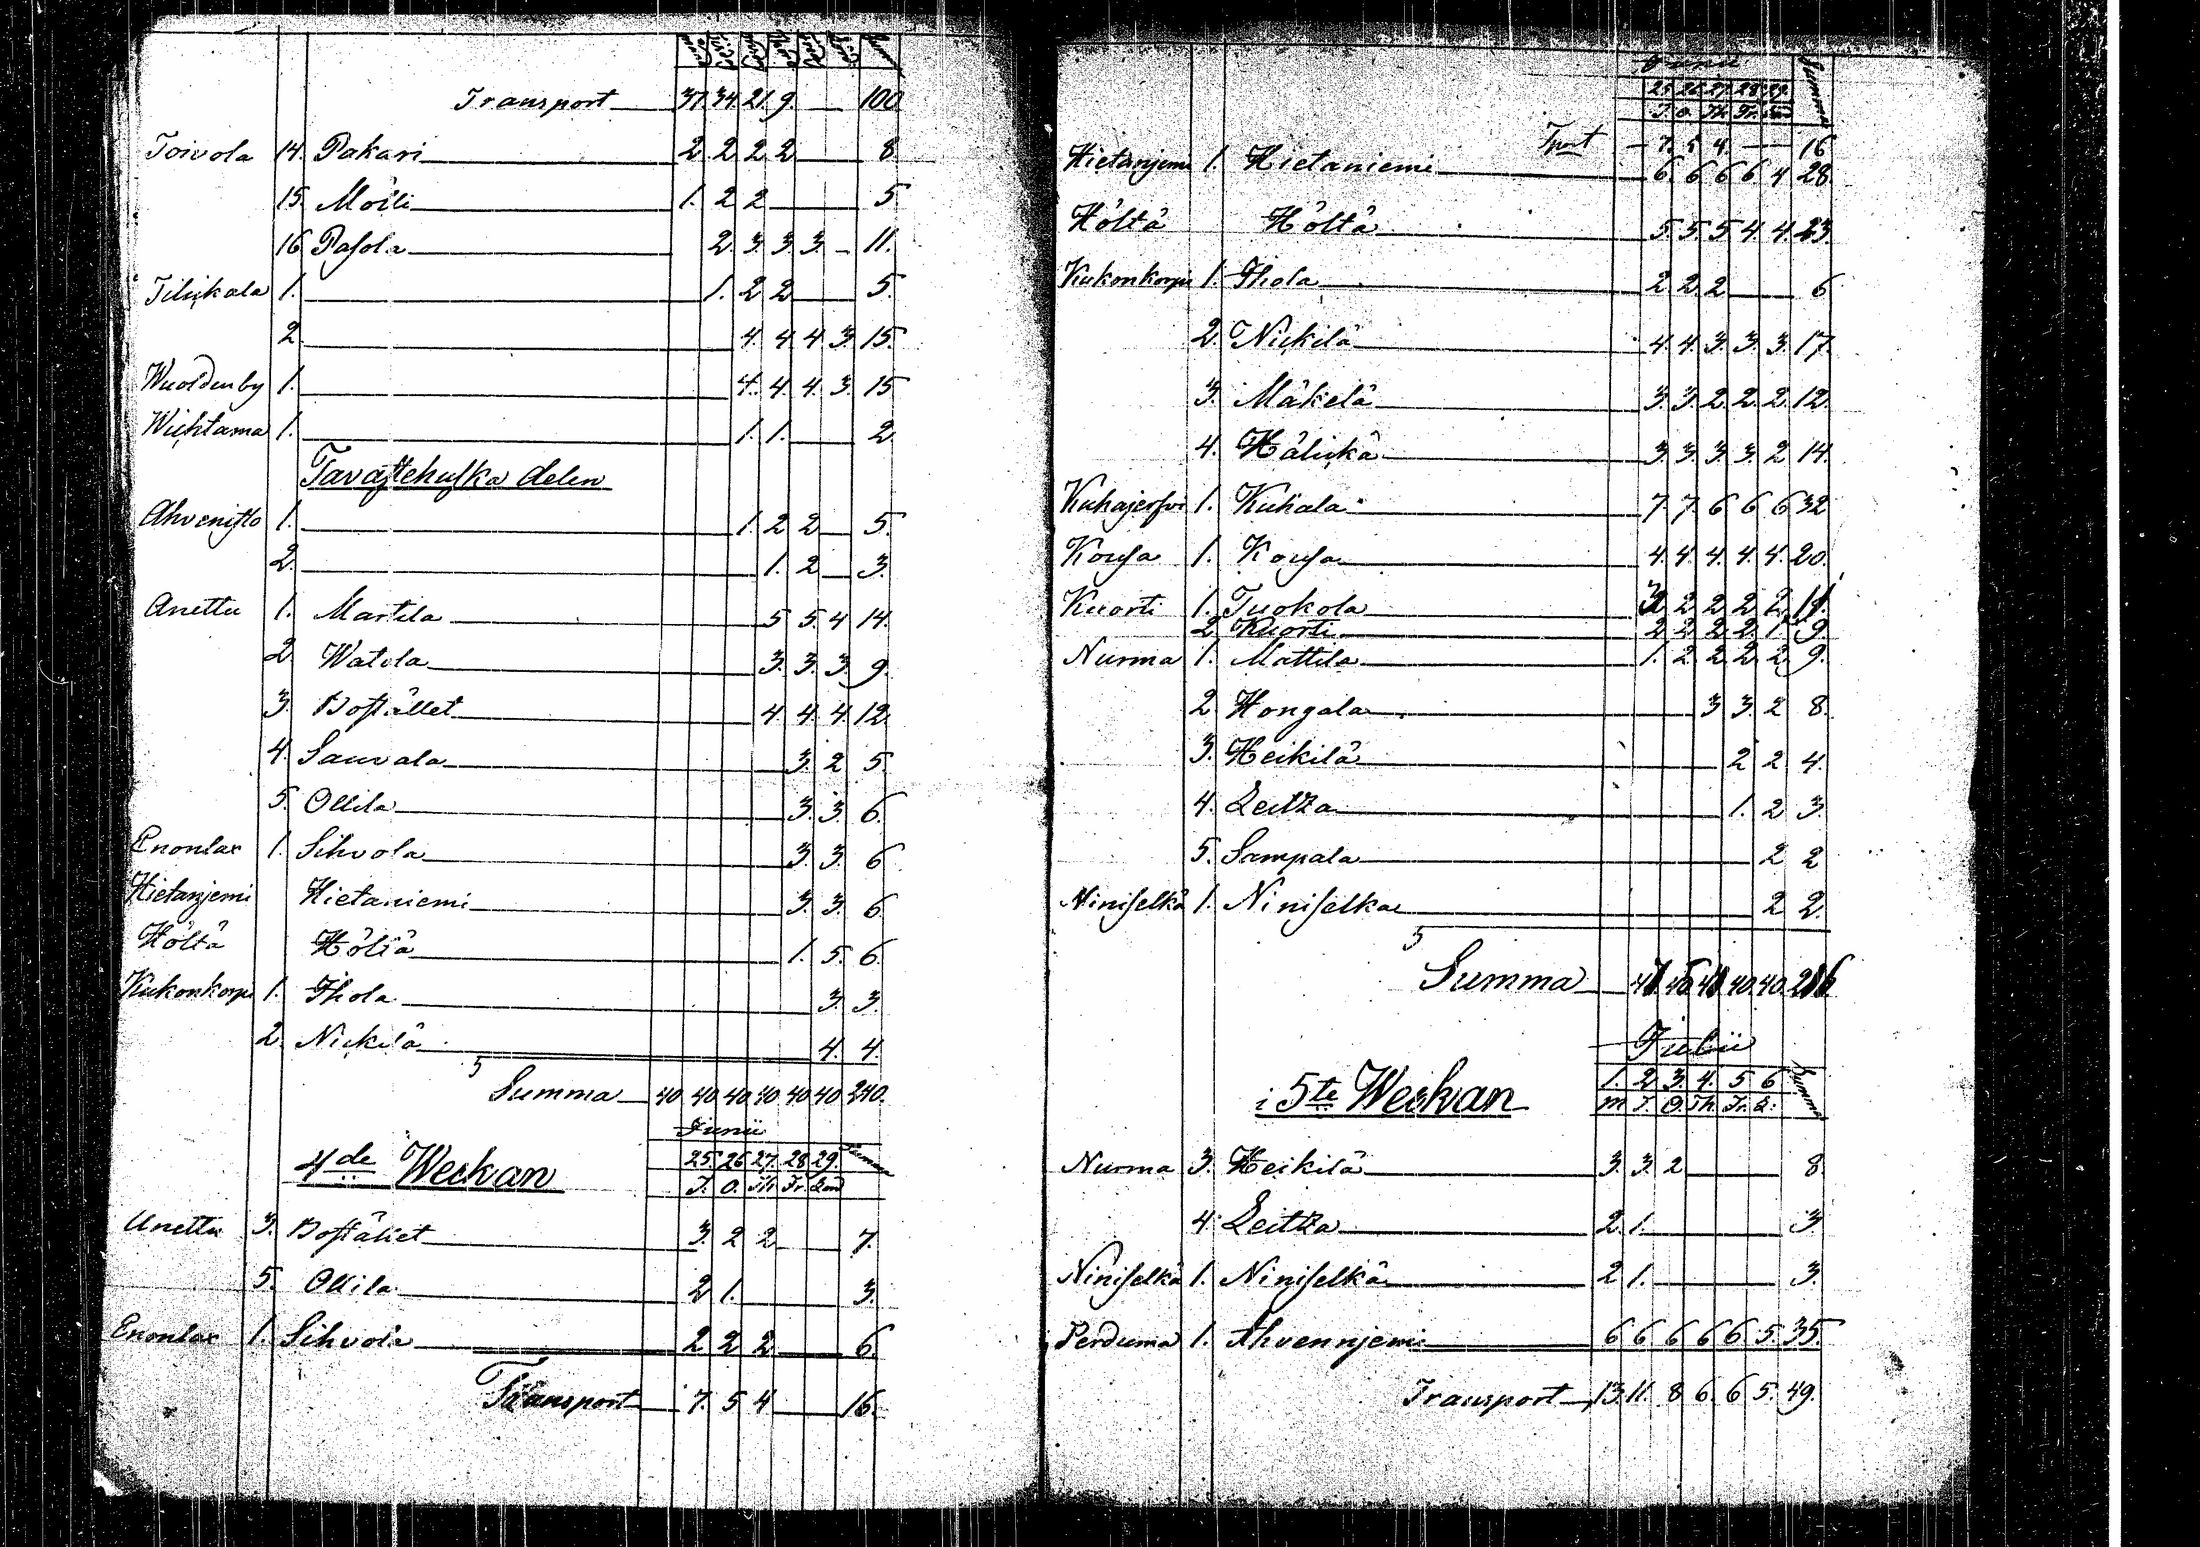 Transport 37. 34. 21. 9. 100
Toivola 14. Pakari 2. 2. 2. 2. 8.
15. Moili 1. 2 2 5.
16. Pasola 2. 3. 3. 3. 11.
Tilikala 1. 1. 2 2 5.
2. 4. 4. 4. 3. 15.
Wuoldenby 1. 4. 4. 4. 3. 15
Wichtama 1. 1. 1. 2
Tavastehuska delen
Ahvenisto 1. 1. 2 2 5.
2. 1. 2 3.
Anettu 1. Martila 5 5. 4 14.
2 Watola 3. 3. 3. 9.
3. Bostället 4 4. 4. 12.
4. Sauvala 3. 2 5.
5. Ollila 3. 3. 6.
Enonlax 1. Sihvola 3. 3. 6
Hietanjemi Hietaniemi 3. 3. 6.
Höltä Höltä 1. 5. 6.
Kukonkorpi 1. Ihola 3. 3.
2. Nickilä 4. 4.
Summa 40. 40. 40. 40. 40. 40. 240.
Junii
25. 26 27. 28 29. Summa
4de Weckan T. O. Th Fr.
Anettu 3. Bostället 3. 2 2 7.
5. Ollila 2 1. 3.
Enonlax 1. Sihvola 2 2 2 6.
Transport 7. 5 4 16.
Junii Summa
25 26 27. 28. 29.
T. O. Th. Fr.
Tport 7. 5 4. 16
Hietanjemi 1. Hietaniemi 6. 6 6 6. 4 28.
Höltä Höltä 5. 5. 5 4. 4. 23.
Kukonkorpi 1. Ihola 2 2 2 6
2. Nickilä 4. 4. 3. 3. 3. 17.
3. Mäkelä 3. 3. 2. 2. 2. 12.
4. Hälickä 3. 3. 3. 3. 2 14.
Kuhajerfvi 1. Kuhala 7. 7. 6 6 6 32
Kousa 1. Kousa 4. 4. 4. 4. 4. 20.
Kuorti 1. Tuokola 3 2 2 2 2 11.
2 Kuorti 2 2. 2. 2. 1. 9.
Nurma 1. Mattila 1. 2. 2. 2. 2 9.
2 Hongala 3 3. 2 8.
3. Heikilä 2 2 4.
4. Leitza 1. 2 3.
5. Sampala 2 2
Niniselkä 1. Niniselkä 2 2.
Summa 40. 40.
Julii
1. 2. 3. 4. 5 6 Summa
i 5te Weckan M T. O. Th. Fr.
Nurma 3. Heikilä 3. 3. 2 8.
4. Leitza 2. 1. 3
Niniselkä 1. Niniselkä 2 1. 3.
Perduma 1. Ahvennjemi 6 6 6 6 6 5. 35.
Transport 13. 11. 8 6. 6 5. 49.